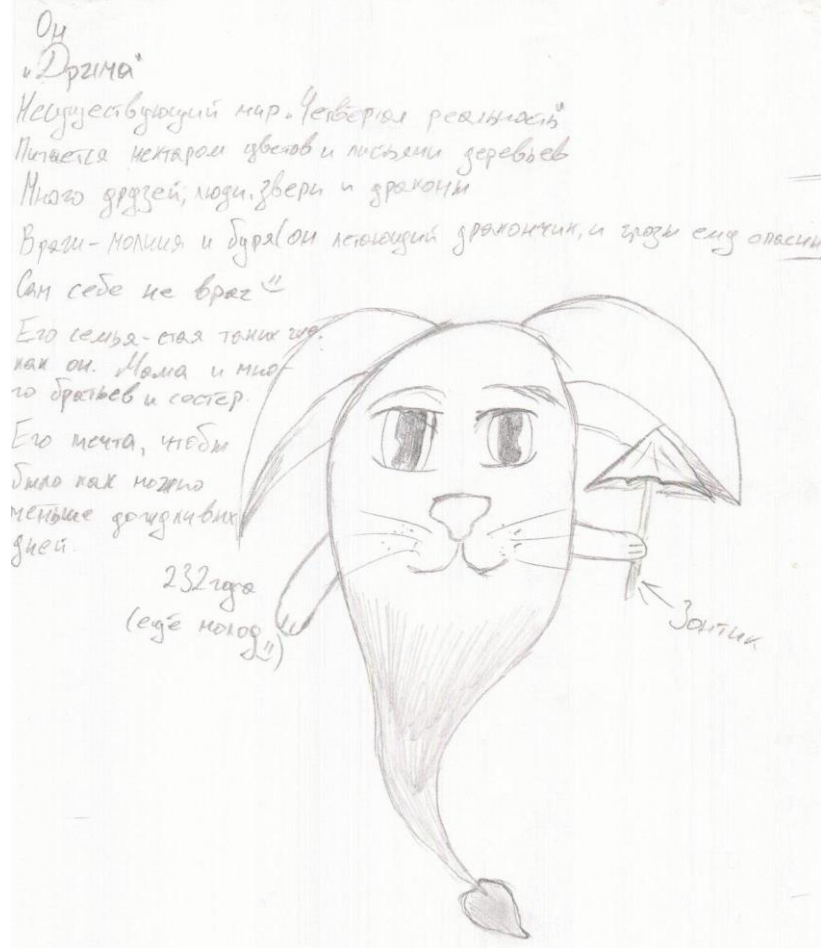 Он
„Дрима"
Несуществующий мир. „Четвёртая реальность"
Питается нектаром цветов и листьями деревьев
Много друзей; люди, звери и драконы
Враги - молния и буря (он летающий дракончик, и грозы ему опасны
Сам себе не враг
Его семья - стая таких же,
как он. Мама и мно-
го братьев и сестер.
Его мечта, чтобы
было как можно
меньше дождливых
дней.
232 года
(ещё молод)
Зонтик